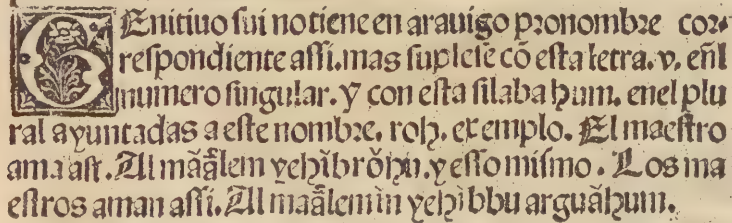 GEnitiuo sui no tiene en arauigo pronombre cor-
respondiente assi. mas suplese cõ esta letra. v. eñl
numero singular. y con esta silaba hum. enel plu
ral ayuntadas a este nombre. roh. exemplo. El maestro
ama assi. Al mãâlem yehib rǒhu. y esso mismo. Los ma
estros aman assi. Al maâlemin yehibbu arguâhum.